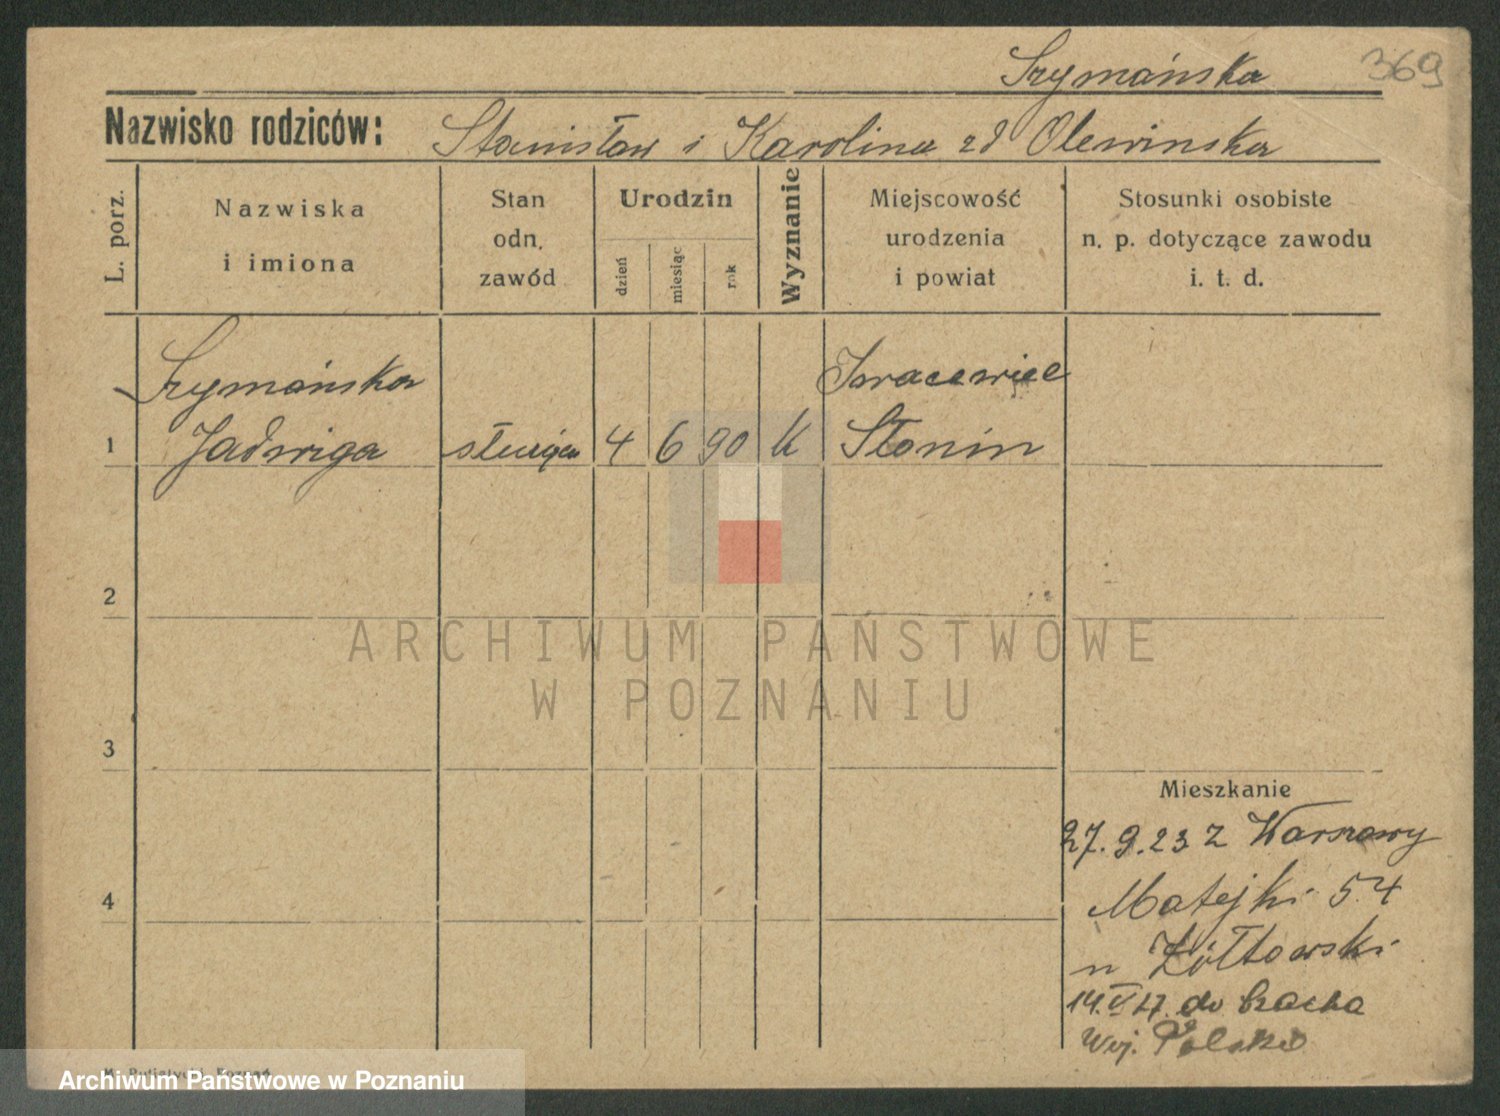 Szymańska 369
Nazwisko rodziców: Stanisław i Karolina zd Olewinska
L. porz.
Nazwiska
i imiona
Stan
odn.
zawód
Urodzin
dzień
miesiąc
rok
Wyznanie
Miejscowość
urodzenia
i powiat
Stosunki osobiste
n. p. dotyczące zawodu
i. t. d.
Szymańska
Jadwiga
1
służąca
4 6 90 k
Iwacewicze
Słonim
2
3
4
Mieszkanie
27.9.23 z Warszawy
Matejki 54
n Żółtowski
14.V 27. do
Woj. Polskie
ARCHIWUM PAŃSTWOWE
W POZNANIU
Archiwum Państwowe w Poznaniu